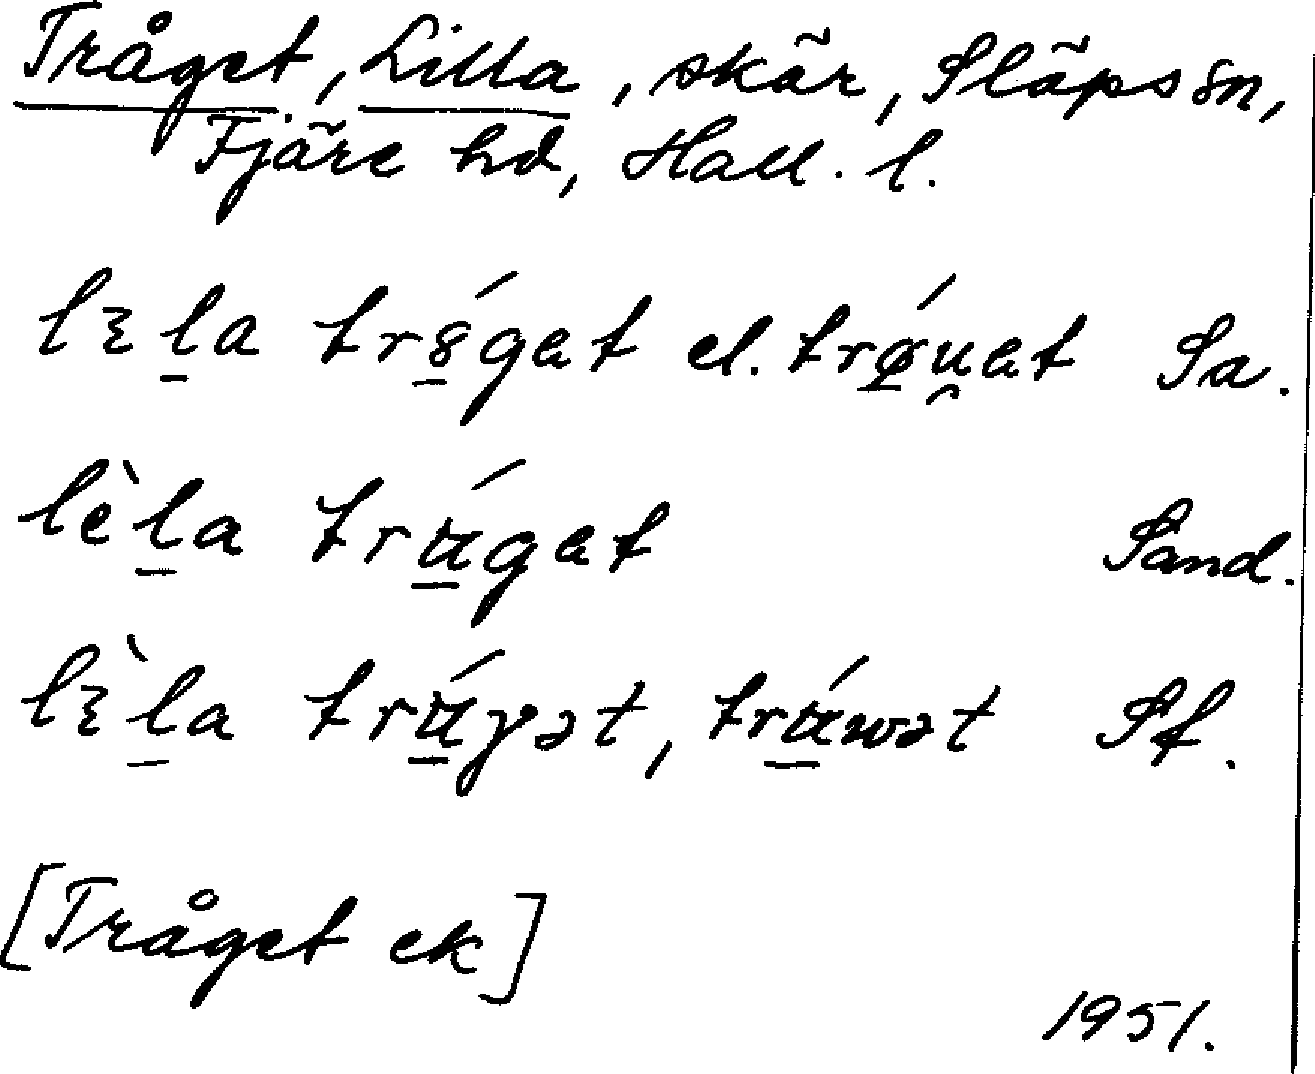 Tråget, Lilla, skär, Släps sn,
Fjäre hd, Hall. l.
lɛl̠a tró̠gat el. trǿ̠u̯at Sa.
lèl̠a trʉ̠́gat Sand.
lɛ̀l̠a trʉ̠́γət, trʉ̠́wət Sf.
[Tråget ek]
1951.